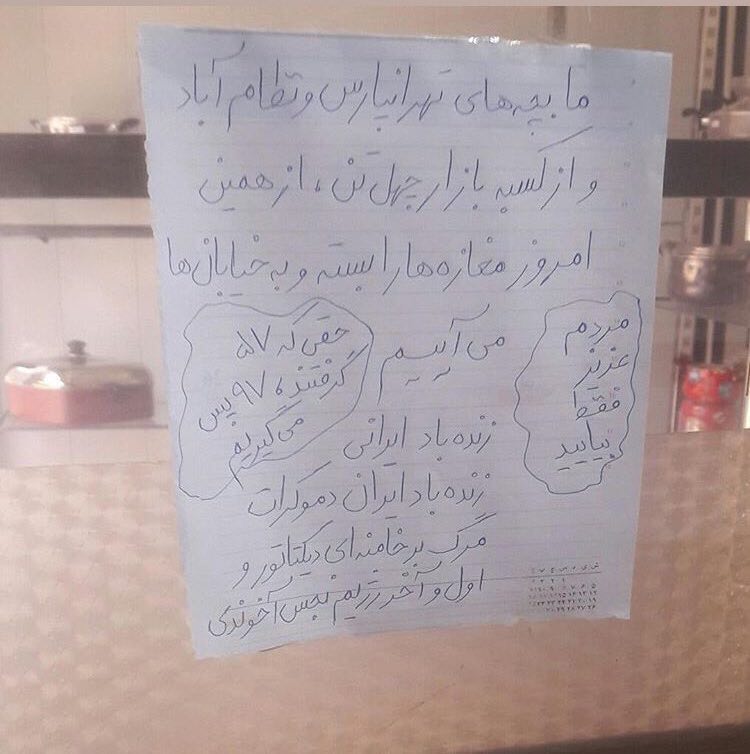 ما بچه‌های تهرانپارس و نظام آباد
و از کسبه بازار چهل تن ، از همین
امروز مغازه ها را بسته و به خیابان ها
می آییم
مردم
عزیز
فقط
بیایید
حقی که ۵۷
گرفتند، ۹۷ پس
می گیریم
زنده باد ایرانی
زنده باد ایران دموکرات
مرگ بر خامنه ای دیکتاتور و
اول و آخر رژیم نجس آخوندی